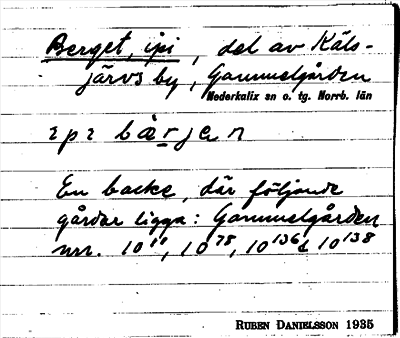 Berget, ipi, del av Käls-
järvs by, Gammelgården
Nederkalix sn o. tg. Norrb. län
bærjen
En backe, där följande
gårdar ligga: Gammelgården
nrr. 10¹¹, 10⁷⁸, 10¹³⁶ & 10¹³⁸
RUBEN DANIELSSON 1935